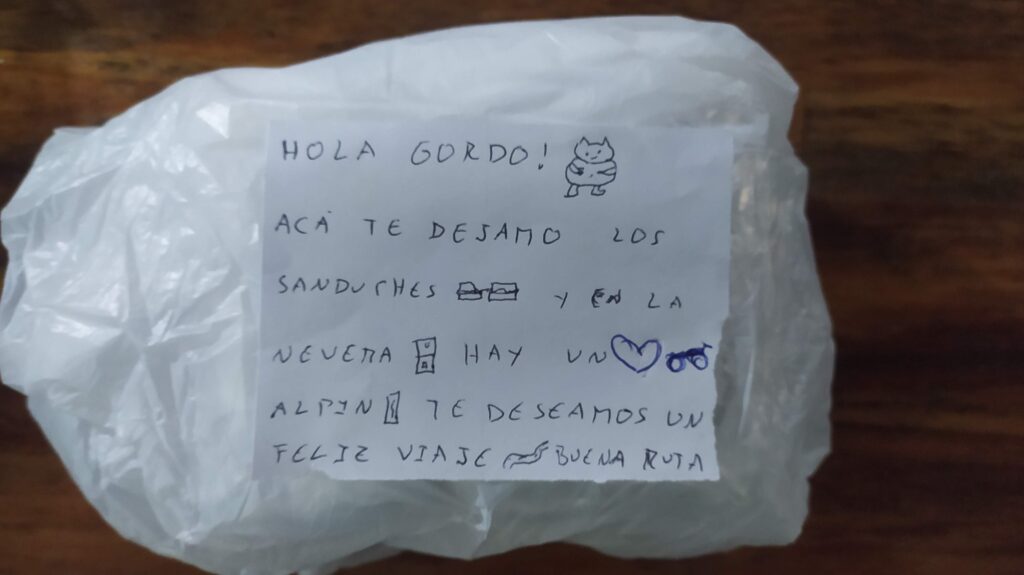 HOLA GORDO!
ACÁ TE DEJAMO LOS
SANDUCHES Y EN LA
NEVERA HAY UN
ALPIN TE DESEAMOS UN
FELIZ VIAJE BUENA RUTA